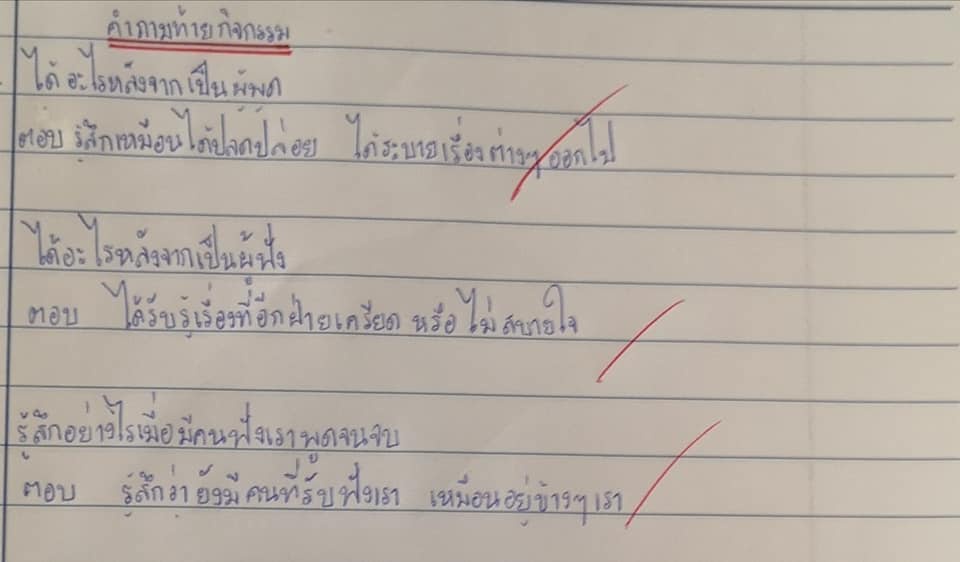 คำถามท้ายกิจกรรม
ได้อะไรหลังจากเป็นผู้พูด
ตอบ รู้สึกเหมือนได้ปลดปล่อย ได้ระบายเรื่องต่างๆออกไป
ได้อะไรหลังจากเป็นผู้ฟัง
ตอบ ได้รับรู้เรื่องที่อีกฝ่ายเครียด หรือ ไม่สบายใจ
รู้สึกอย่างไรเมื่อมีคนฟังเราพูดจนจบ
ตอบ รู้สึกว่ายังมีคนที่รับฟังเรา เหมือนอยู่ข้างๆเรา